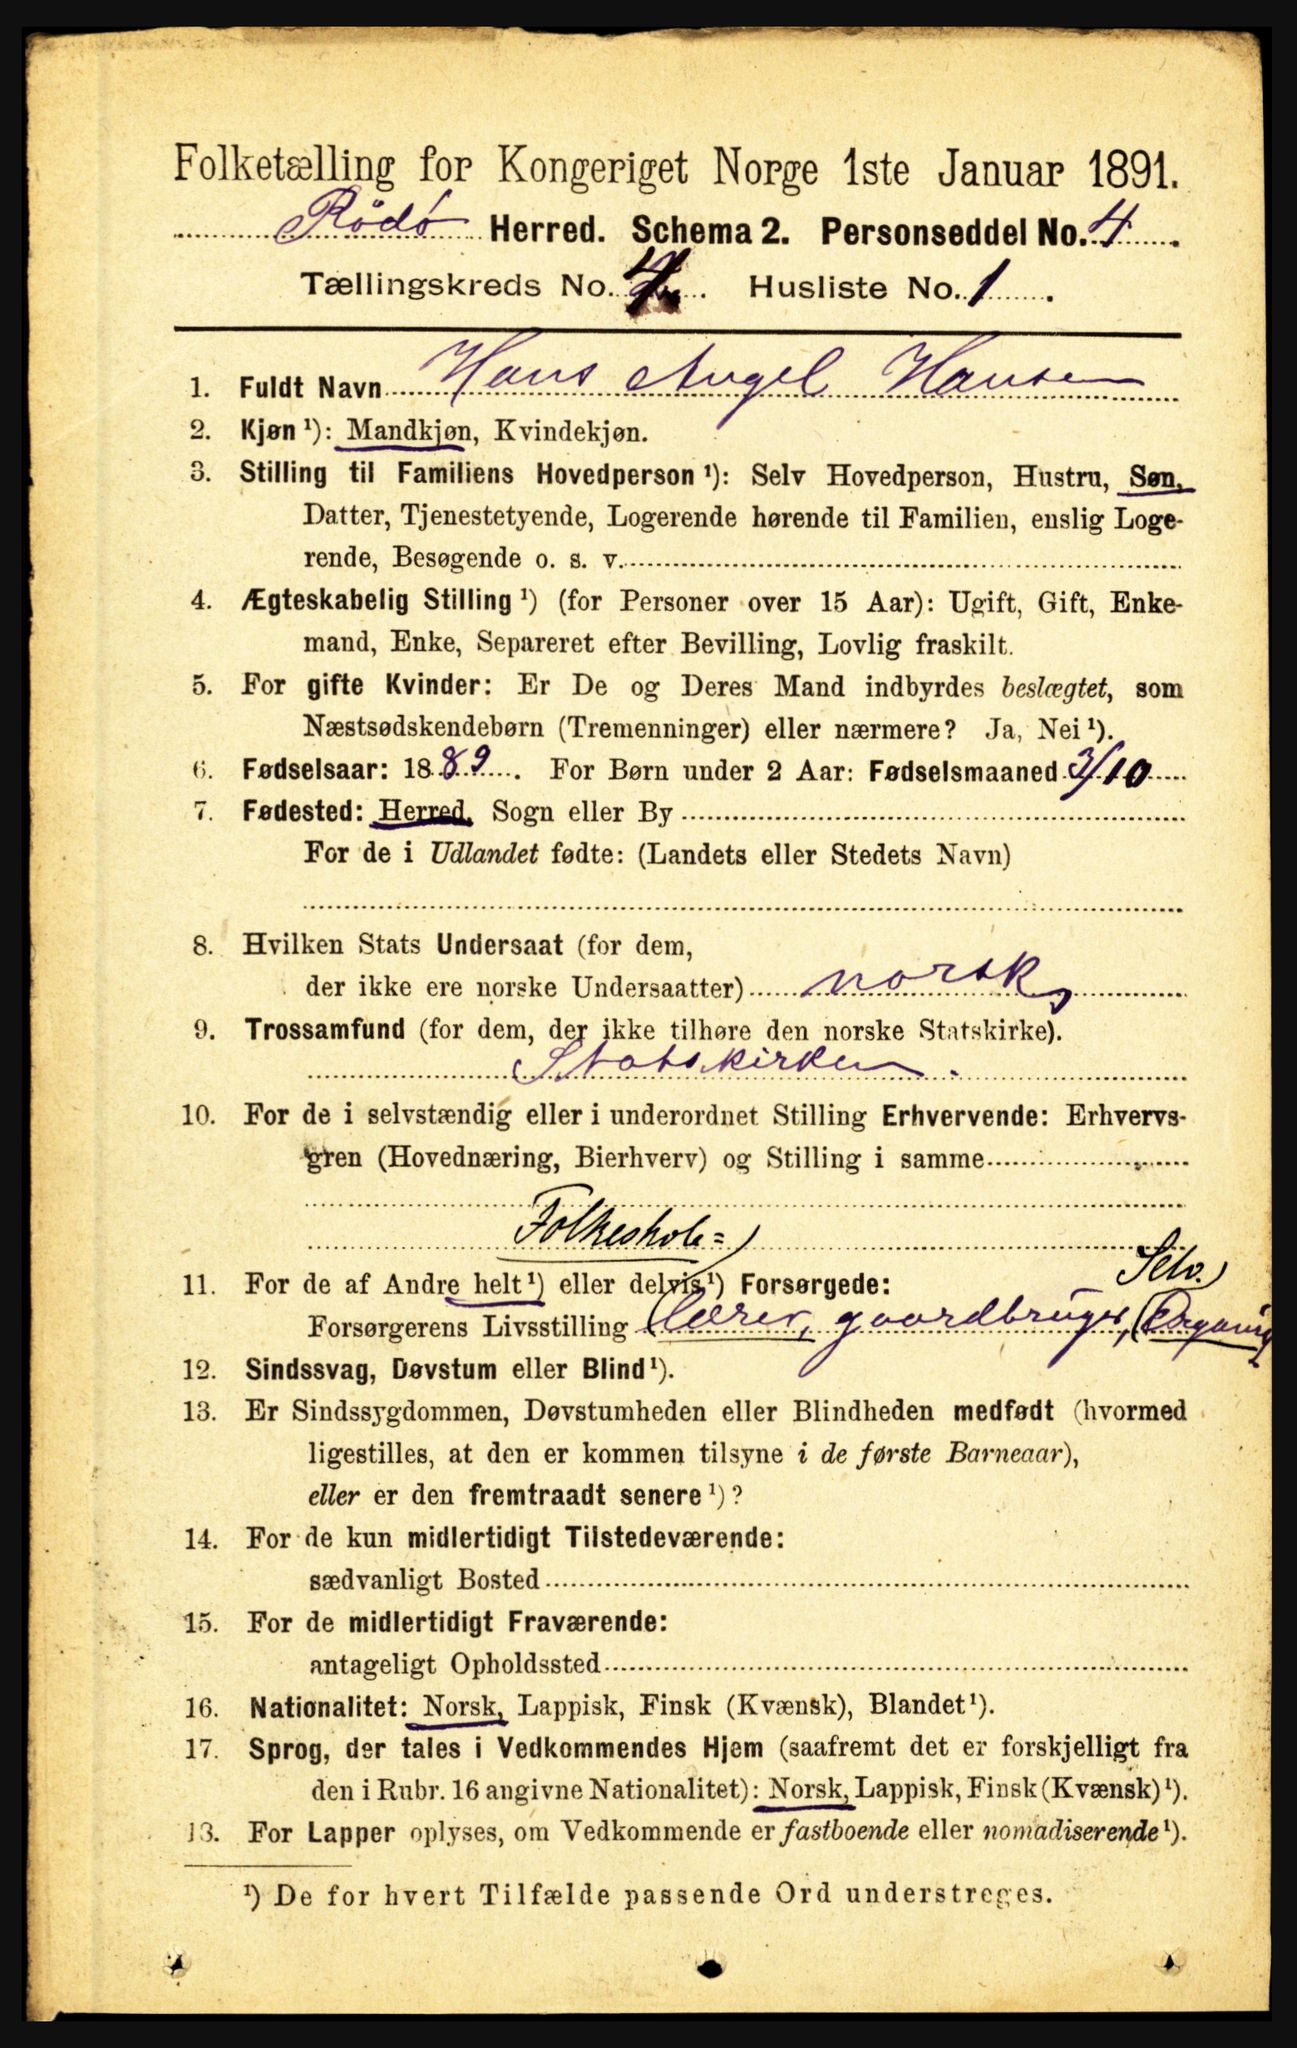 Folketælling for Kongeriget Norge 1ste Januar 1891.
Rödö Herred. Schema 2. Personseddel No. 4
Tællingskreds No. 4. Husliste No. 1.
1. Fuldt Navn Hans Angel Hansen
2. Kjøn ¹): Mandkjøn, Kvindekjøn.
3. Stilling til Familiens Hovedperson ¹): Selv Hovedperson, Hustru, Søn,
Datter, Tjenestetyende, Logerende hørende til Familien, enslig Loge-
rende, Besøgende o. s. v.
4. Ægteskabelig Stilling ¹) (for Personer over 15 Aar): Ugift, Gift, Enke-
mand, Enke, Separeret efter Bevilling, Lovlig fraskilt.
5. For gifte Kvinder: Er De og Deres Mand indbyrdes beslægtet, som
Næstsødskendebørn (Tremenninger) eller nærmere? Ja, Nei ¹).
6. Fødselsaar: 1889. For Børn under 2 Aar: Fødselsmaaned 3/10
7. Fødested: Herred, Sogn eller By
For de i Udlandet fødte: (Landets eller Stedets Navn)
8. Hvilken Stats Undersaat (for dem,
der ikke ere norske Undersaatter) norsk,
9. Trossamfund (for dem, der ikke tilhøre den norske Statskirke).
Statskirken.
10. For de i selvstændig eller i underordnet Stilling Erhvervende: Erhvervs-
gren (Hovednæring, Bierhverv) og Stilling i samme
Folkeskole=
11. For de af Andre helt ¹) eller delvis ¹) Forsørgede: Selv.
Forsørgerens Livsstilling Lærer, gaardbruger,
12. Sindssvag, Døvstum eller Blind ¹).
13. Er Sindssygdommen, Døvstumheden eller Blindheden medfødt (hvormed
ligestilles, at den er kommen tilsyne i de første Barneaar),
eller er den fremtraadt senere ¹)?
14. For de kun midlertidigt Tilstedeværende:
sædvanligt Bosted
15. For de midlertidigt Fraværende:
antageligt Opholdssted
16. Nationalitet: Norsk, Lappisk, Finsk (Kvænsk), Blandet ¹).
17. Sprog, der tales i Vedkommendes Hjem (saafremt det er forskjelligt fra
den i Rubr. 16 angivne Nationalitet): Norsk, Lappisk, Finsk (Kvænsk) ¹).
13. For Lapper oplyses, om Vedkommende er fastboende eller nomadiserende ¹).
¹) De for hvert Tilfælde passende Ord understreges.